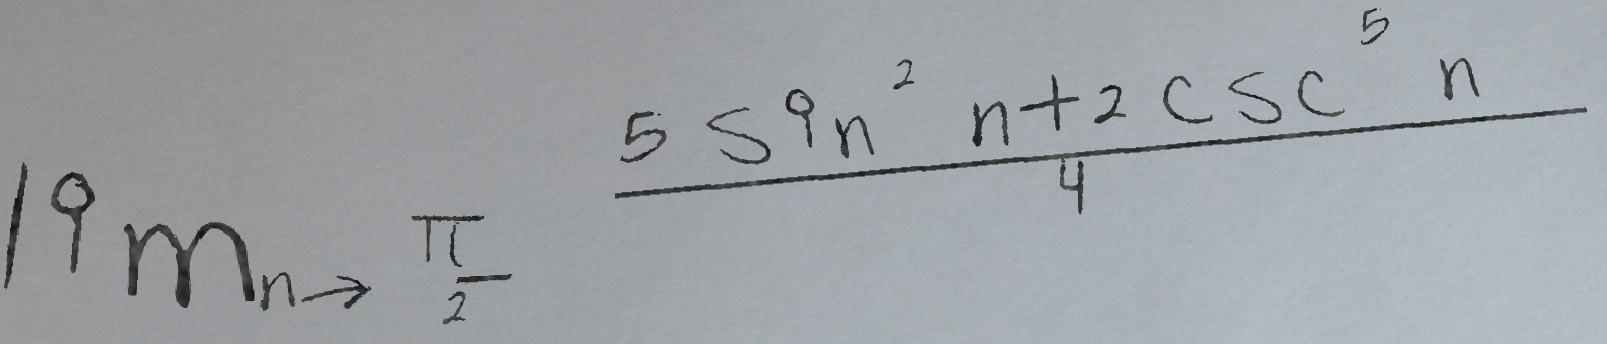 lim n→ π/2 (5 sin² n + 2 csc⁵ n)/4